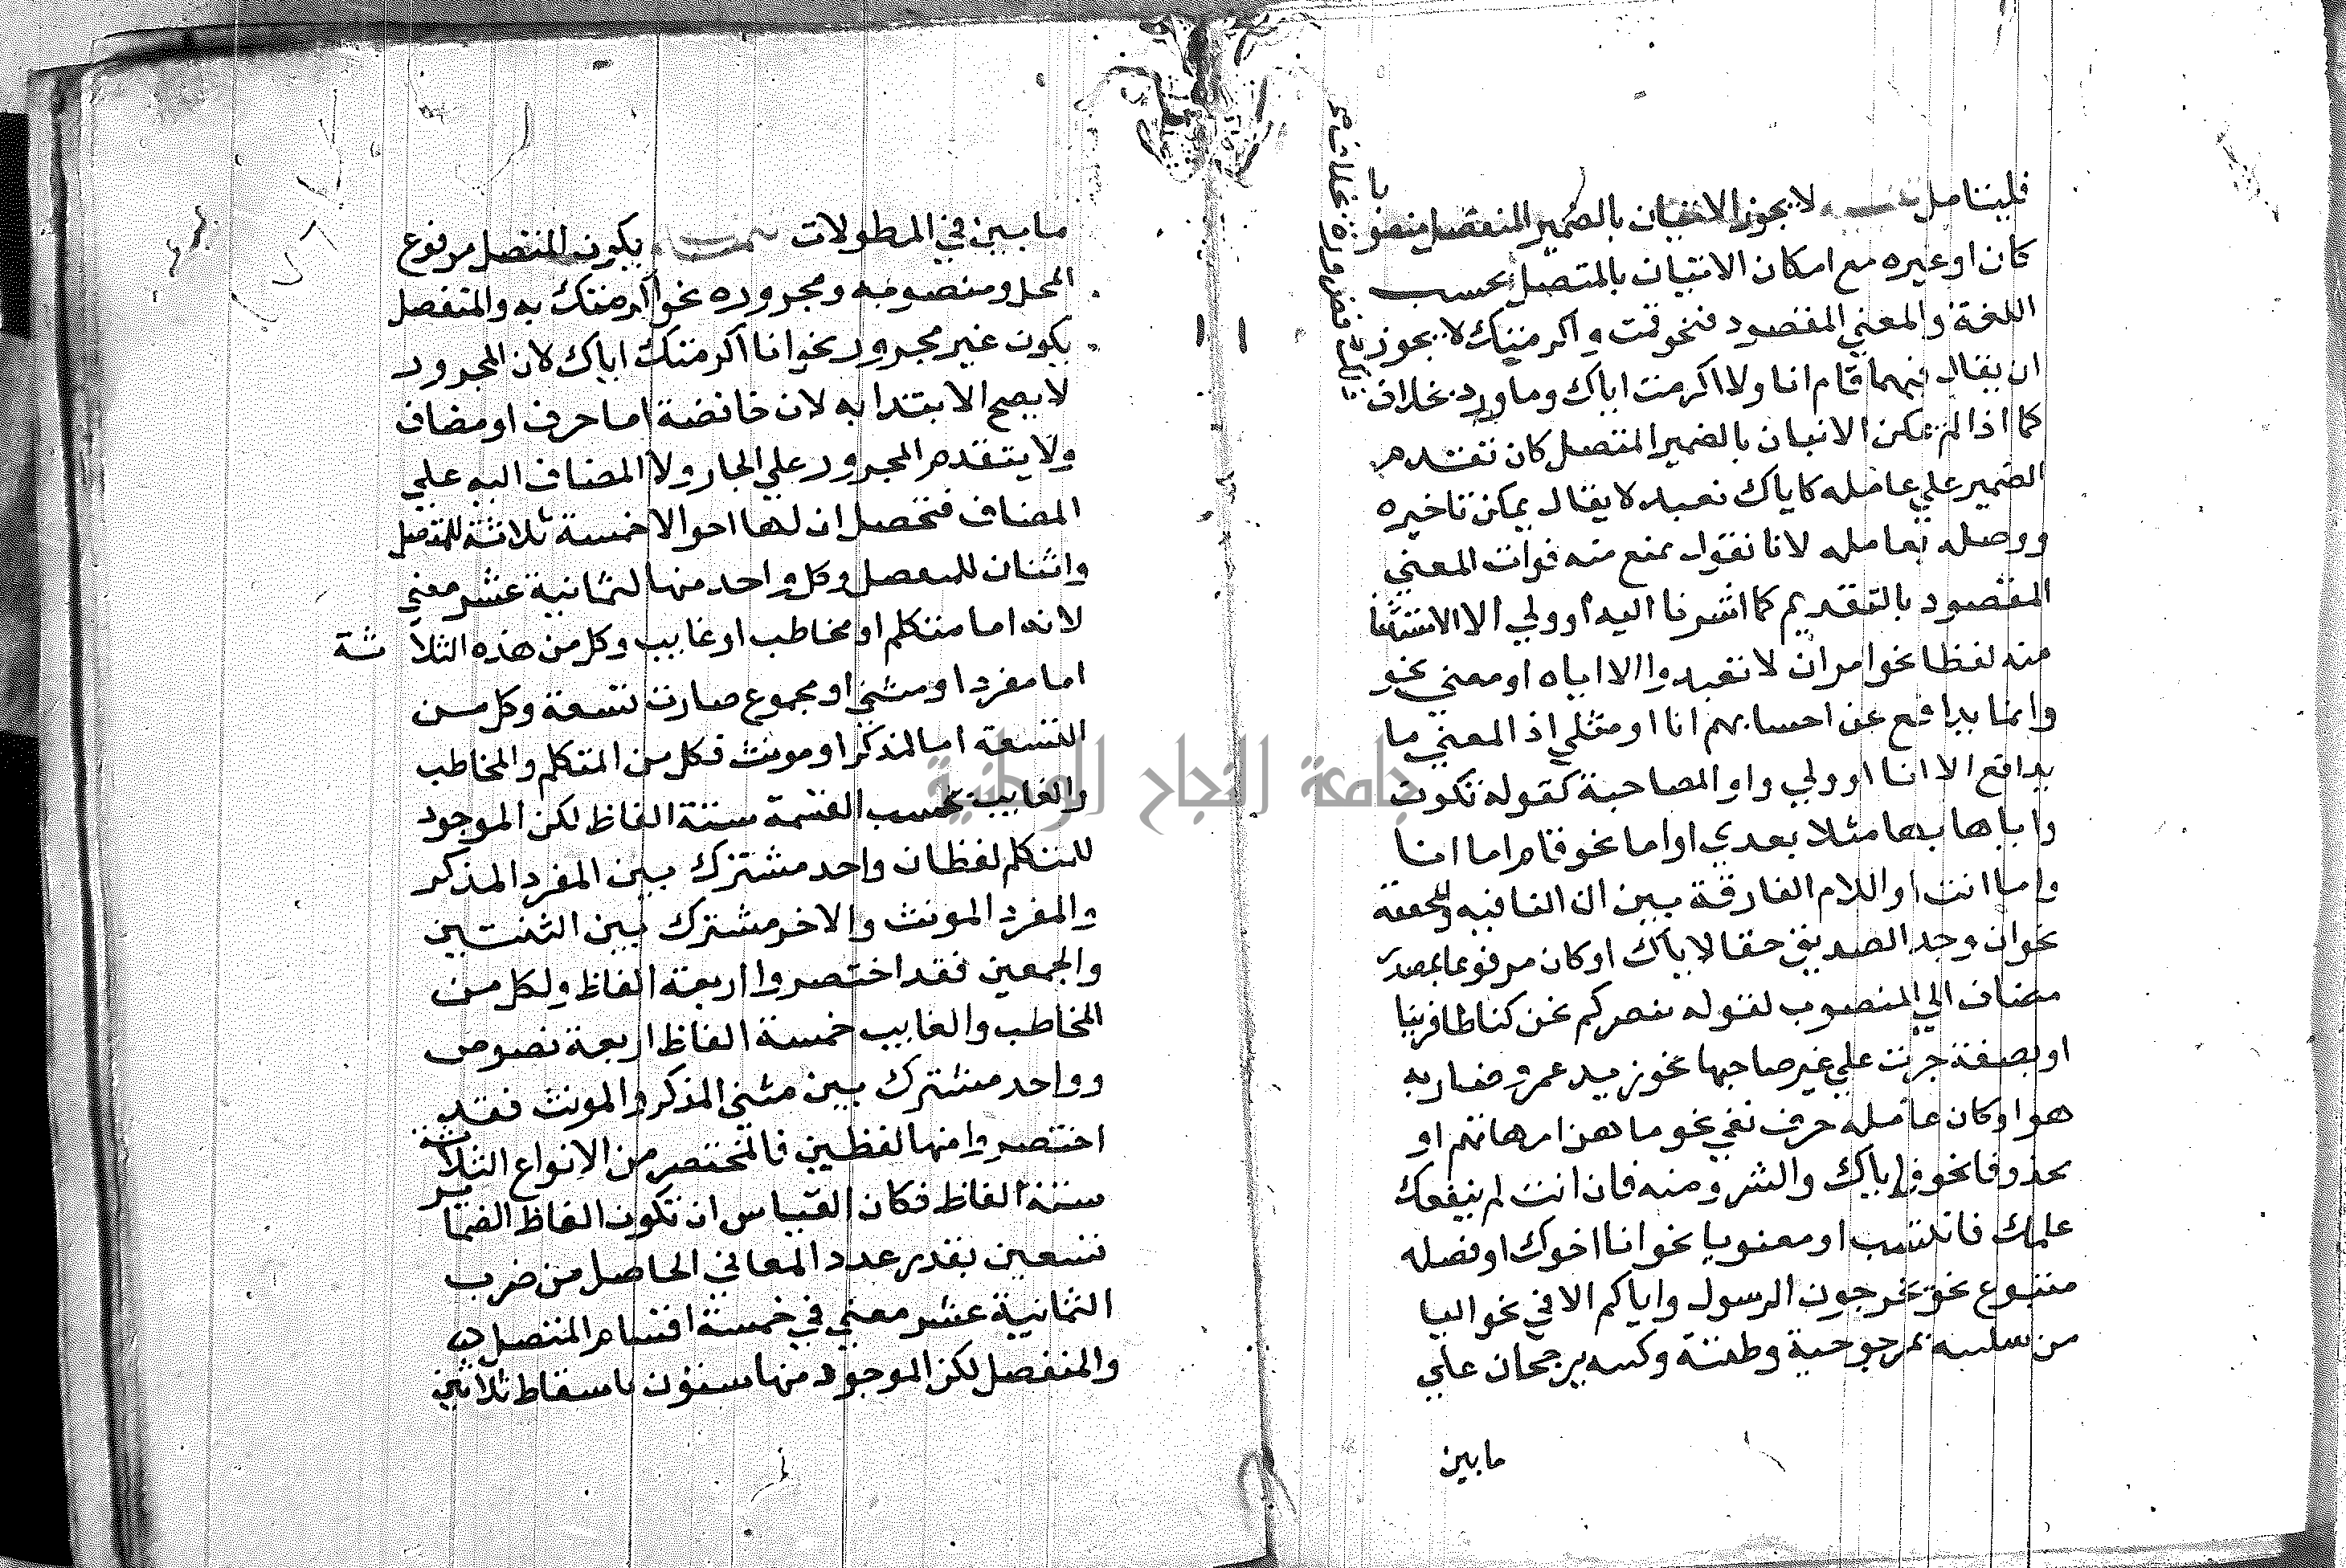 فليتامل لا يجوز الاتيان بالضمير المنفصل منصوبا
كان او غيره مع امكان الاتيان بالمتصل بحسب
اللغة والمعني المقصود فنحو قمت واكرمتك لا يجوز
ان يقال فيهما قام انا ولا اكرمت اياك وما ورد بخلاف
كما اذا لم يمكن الاتيان بالضمير المتصل كان تقدم
الضمير علي عامله كاياك نعبد لا يقال يمكن تاخيره
ووصله بعامله لانا نقول يمنع منه فوات المعني
المقصود بالتقديم كما اشرنا اليه او ولي الا الاستثنا
منه لفظا نحو امر ان لا تعبدوا الا اياه او معني نحو
وانما يدافع عن احسابهم انا او مثلي اذ المعني ما
يدافع الا انا او ولي واو المصاحبة كقوله تكون
واياها بها مثلا بعدي او اما نحو قام اما انا
واما انت او اللام الفارقة بين ان النافيه والمخففة
نحو ان وجد الصديق حقا لاياك او كان مرفوعا بمصدر
مضاف الي المنصوب لقوله بنصركم نحن كنا ظافرينا
او بصفة جرت علي غير صاحبها نحو زيد عمرو ضاربه
هو او كان عامله حرف نفي نحو ما هن امهاتهم او
محذوفا نحو اياك والشر ومنه فان انت لم ينفعك
علمك فانتسب او معنويا نحو انا اخوك او فصله
متبوع نحو يخرجون الرسول واياكم الا في نحو اليا
من سلنيه بمرجوحية وظننته وكنته برجحان علي
مابين
مابين في المطولات ويكون المتصل مرفوع
المحل ومنصوبه ومجروره نحو اكرمتك به والمنفصل
يكون غير مجرور نحو انا اكرمتك اياك لان المجرور
لا يصح الابتدا به لان خافضة اما حرف او مضاف
ولا يتقدم المجرور علي الجار ولا المضاف اليه علي
المضاف فتحصل ان لها احوالا خمسة ثلاثة للمتصل
واثنان للمنفصل وكل واحد منها لثمانية عشر معني
لانه اما متكلم او مخاطب او غايب وكل من هذه الثلاثة
اما مفرد او مثني او مجموع صارت تسعة وكل من
التسعة اما لمذكر او مونث فكل من المتكلم والمخاطب
والغايب بحسب القسمة ستة الفاظ لكن الموجود
للمتكلم لفظان واحد مشترك بين المفرد المذكر
والمفرد المونث والاخر مشترك بين التثنيتين
والجمعين فقد اختصروا اربعة الفاظ ولكل من
المخاطب والغايب خمسة الفاظ اربعة نصوص
وواحد مشترك بين مثني المذكر والمونث فقد
اختصروا منها لفظين فالمختصر من الانواع الثلاثة
ستة الفاظ فكان القياس ان تكون الفاظ الضماير
تسعين بقدر عدد المعاني الحاصل من ضرب
الثمانية عشر معني في خمسة اقسام المتصل
والمنفصل لكن الموجود منها ستون باسقاط ثلاثين
جامعة النجاح الوطنية